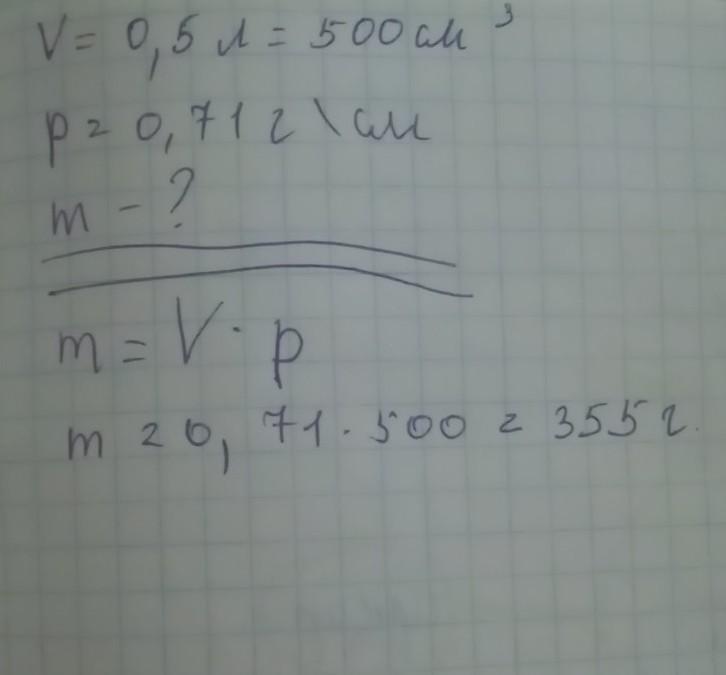 V = 0,5 л = 500 см³
p = 0,71 г \ см
m - ?
m = V · p
m = 0,71 · 500 = 355 г.